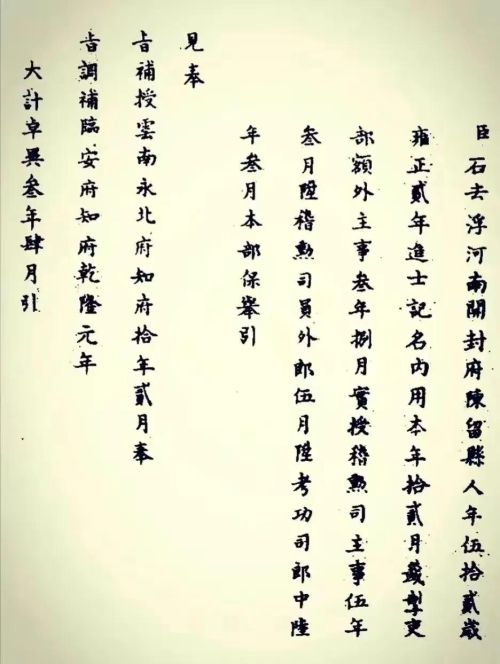 臣石去浮河南開封府陳留縣人年伍拾貳歲
雍正貳年進士記名內用本年拾貳月籤掣吏
部額外主事叁年捌月實授稽勲司主事伍年
叁月陞稽勲司員外郎伍月陞考功司郎中陸
年叁月本部保舉引
見奉
旨補授雲南永北府知府拾年貳月奉
旨調補臨安府知府乾隆元年
大計卓異叁年肆月引